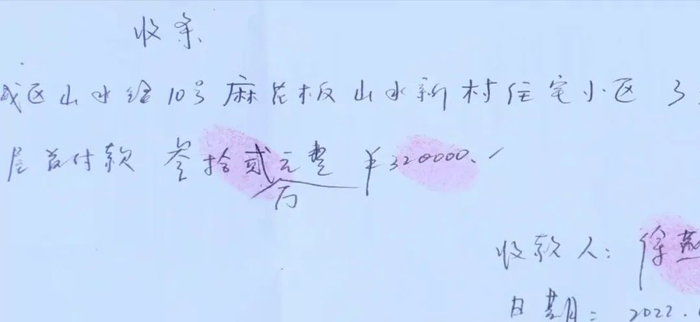 收条
城区山水绿10号麻花板山水新村住宅小区3
层首付款 叁拾贰万元整 ¥320000.
收款人：徐燕
日期：2022.